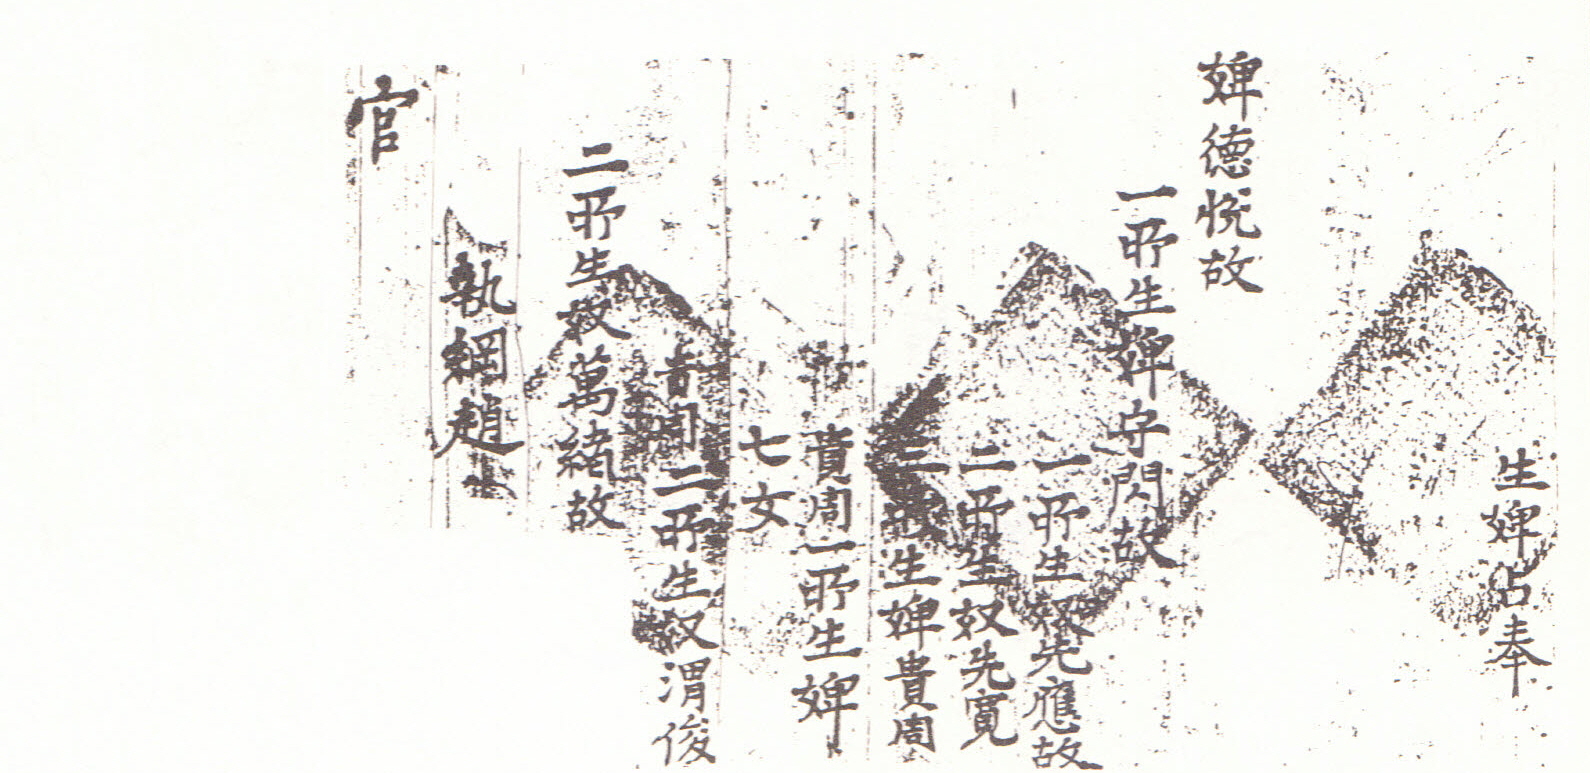 生婢占奉
婢德悅故
一所生婢守閃故
一所生奴先應故
二所生奴先寬
三所生婢貴周
貴周一所生婢
七女
二所生奴渭俊
二所生奴萬緒故
執綱趙
官